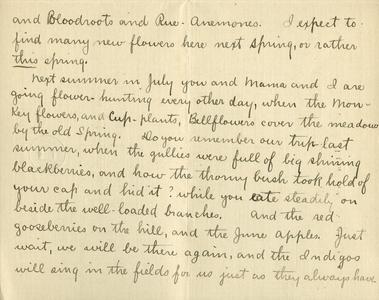 and Bloodroots and Rue-Anemones. I expect to
find many new flowers here next spring, or rather
this spring.
Next summer in July you and Mama and I are
going flower-hunting every other day, when the Mon-
key flowers, and Cup-plants, Bellflowers cover the meadow
by the old Spring. Do you remember our trip last
summer, when the gullies were full of big shining
blackberries, and how the thorny bush took hold of
your cap and hid it? while you ate steadily on
beside the well-loaded branches. And the red
gooseberries on the hill, and the June apples. Just
wait, we will be there again, and the Indigos
will sing in the fields for us just as they always have